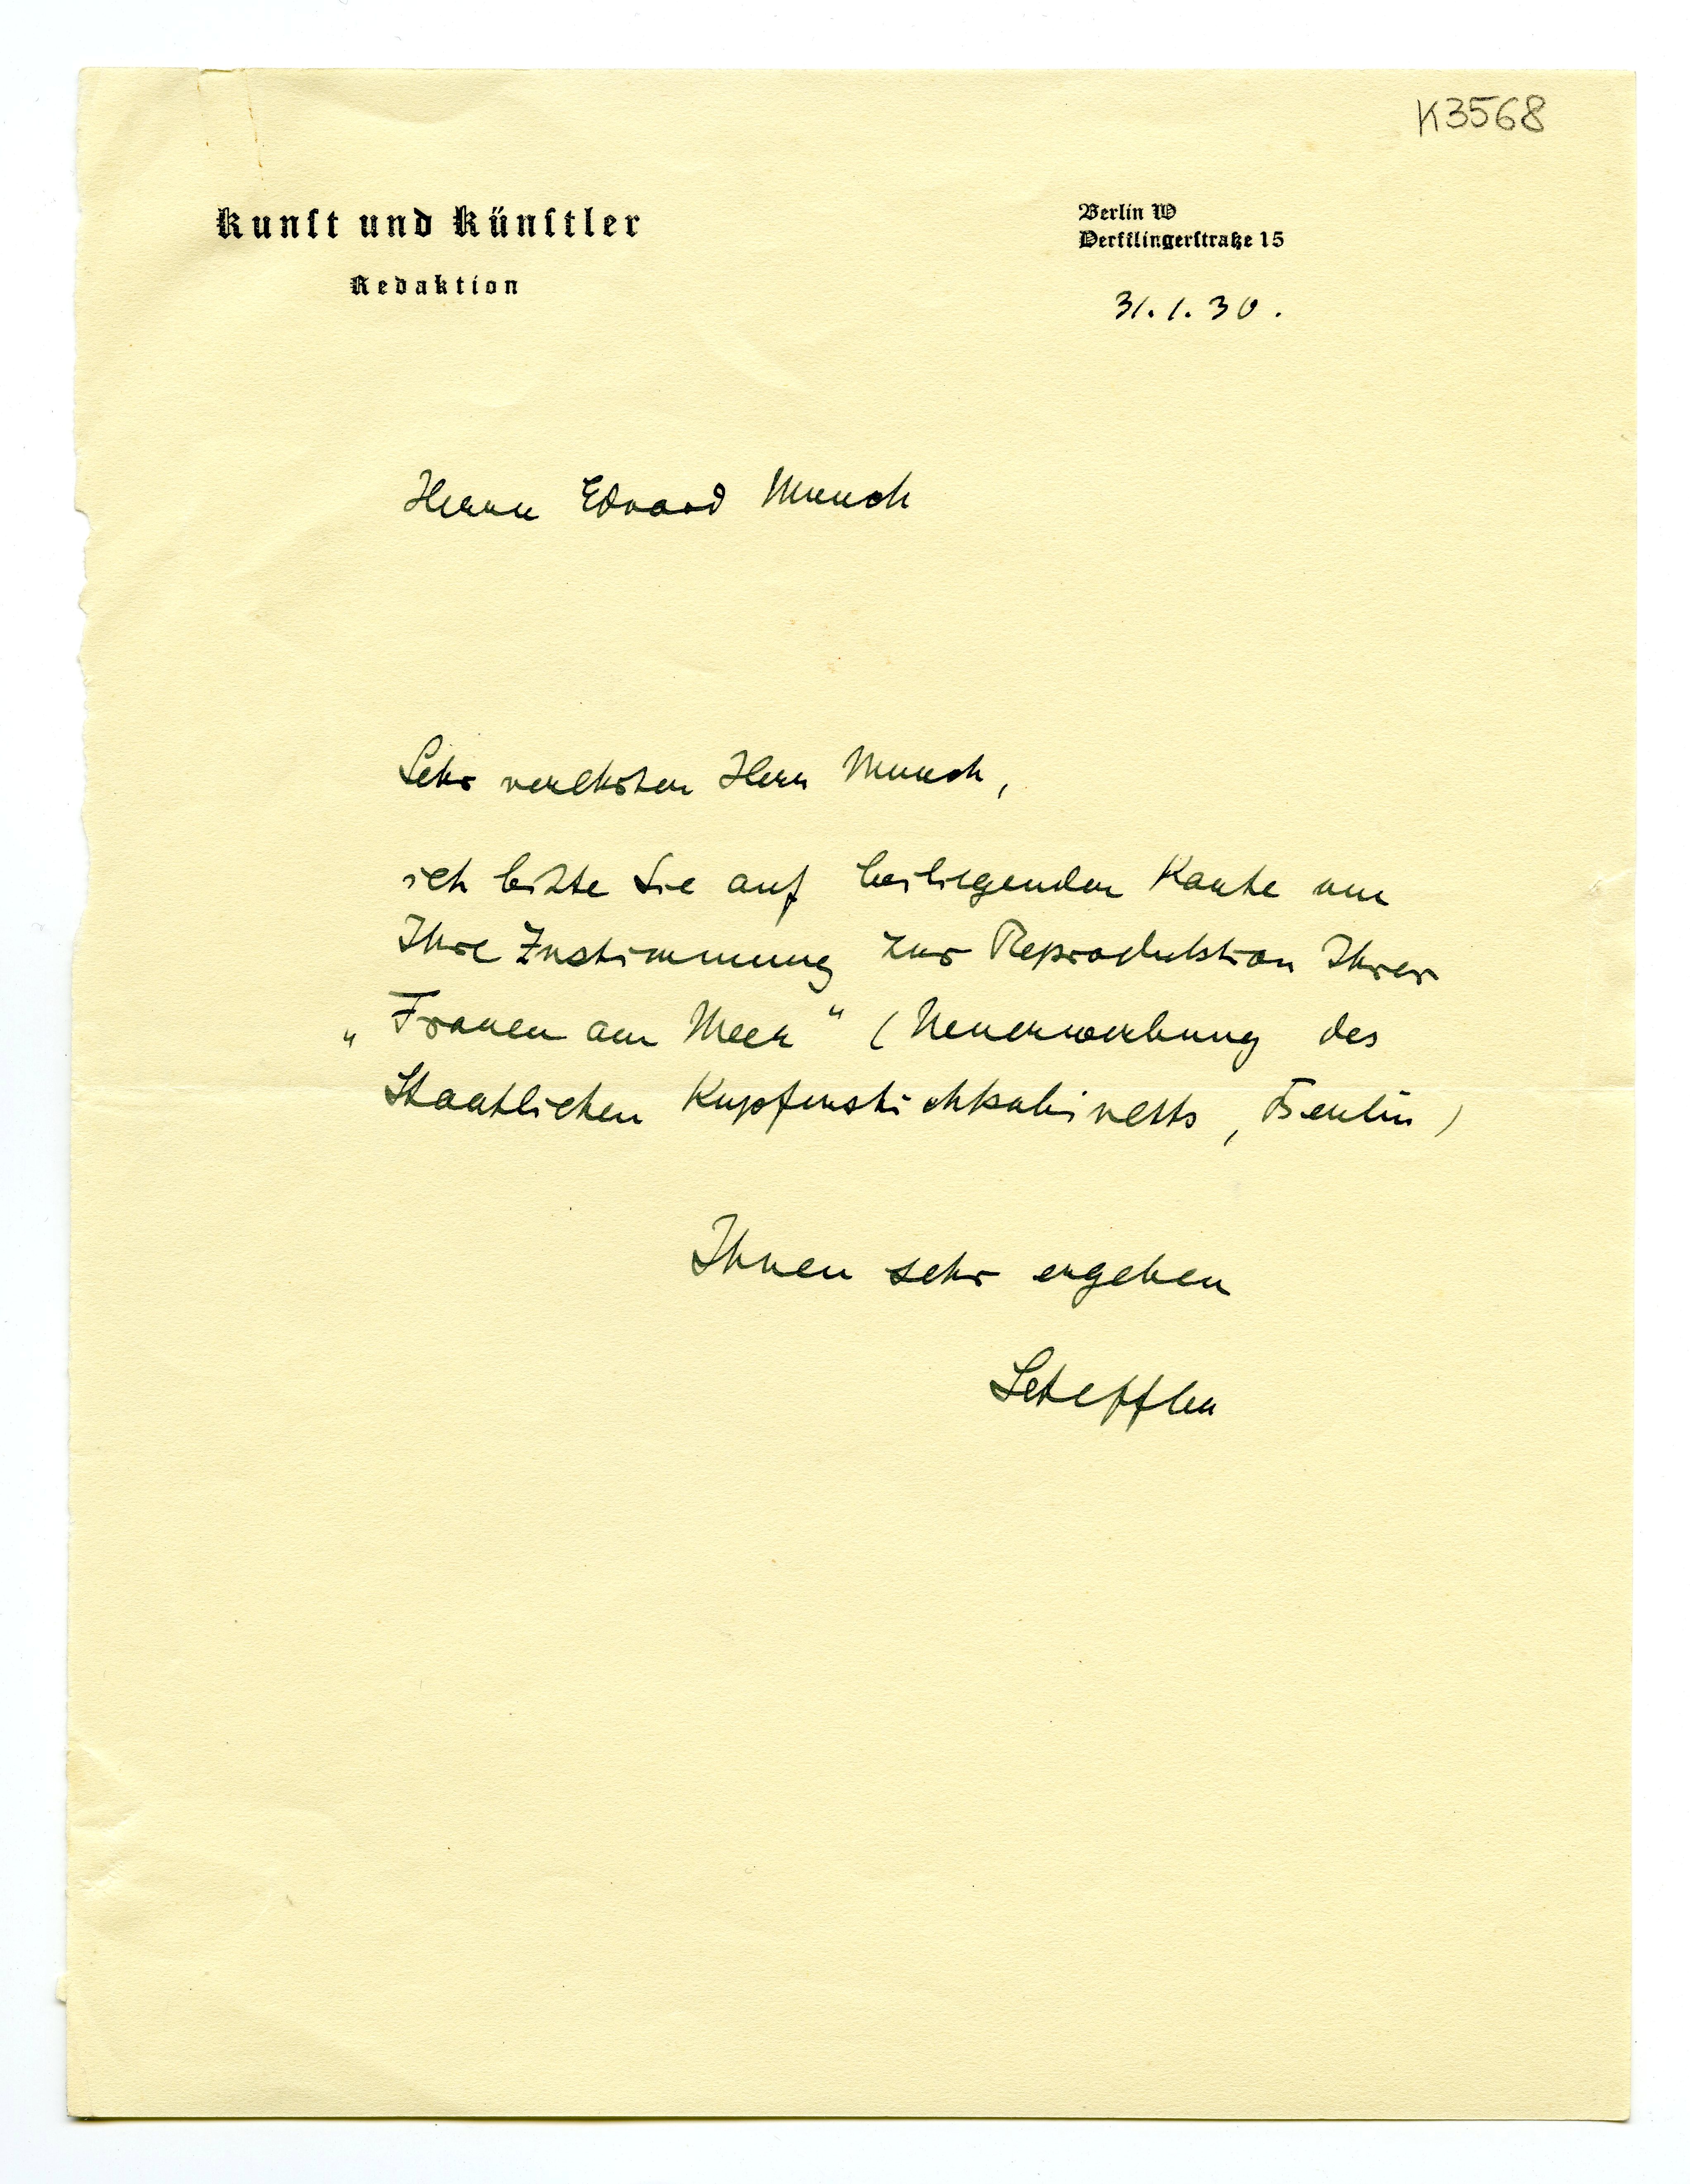 K3568
Kunſt und Künſtler
Redaktion
Berlin W
Derfflingerſtraße 15
31.1.30.
Herrn Edvard Munch
Sehr verehrter Herr Munch,
ich bitte Sie auf beiliegender Karte um
Ihre Zustimmung zur Reproduktion Ihrer
„Frauen am Meer“ (Neuerwerbung des
Staatlichen Kupferstichkabinetts, Berlin)
Ihnen sehr ergeben
Scheffler